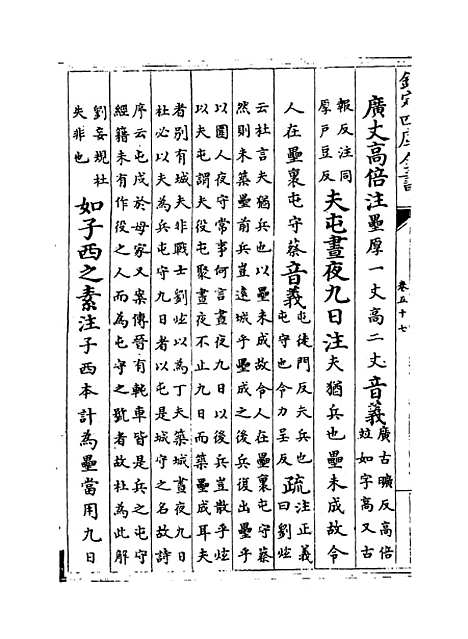 欽定四庫全書
卷五十七
廣丈高倍注壘厚一丈高二丈音義廣古曠反高倍
竝如字高又古
報反注同
厚戶豆反夫屯晝夜九日注夫猶兵也壘未成故令
人在壘裏屯守蔡音義屯徒門反夫兵也
屯守也令力呈反疏注正義
曰劉炫
云社言夫猶兵也以壘未成故令人在壘裏屯守蔡
然則未築壘前兵豈遠城乎壘成之後兵復出壘乎
以圍人夜守常事何言晝夜九日以後兵豈散乎炫
以夫屯謂夫役屯聚晝夜不止九日而築壘成耳夫
者別有城夫非戰士劉炫以為丁夫築城晝夜九日
社必以夫為兵屯守九日者以屯是城守之名故詩
序云屯戍於母家又案傳晉有軘車皆是兵之屯守
經籍未有作役之人而為屯守之號者故杜為此解
劉妄規杜
失非也如子西之素注子西本計為壘當用九日